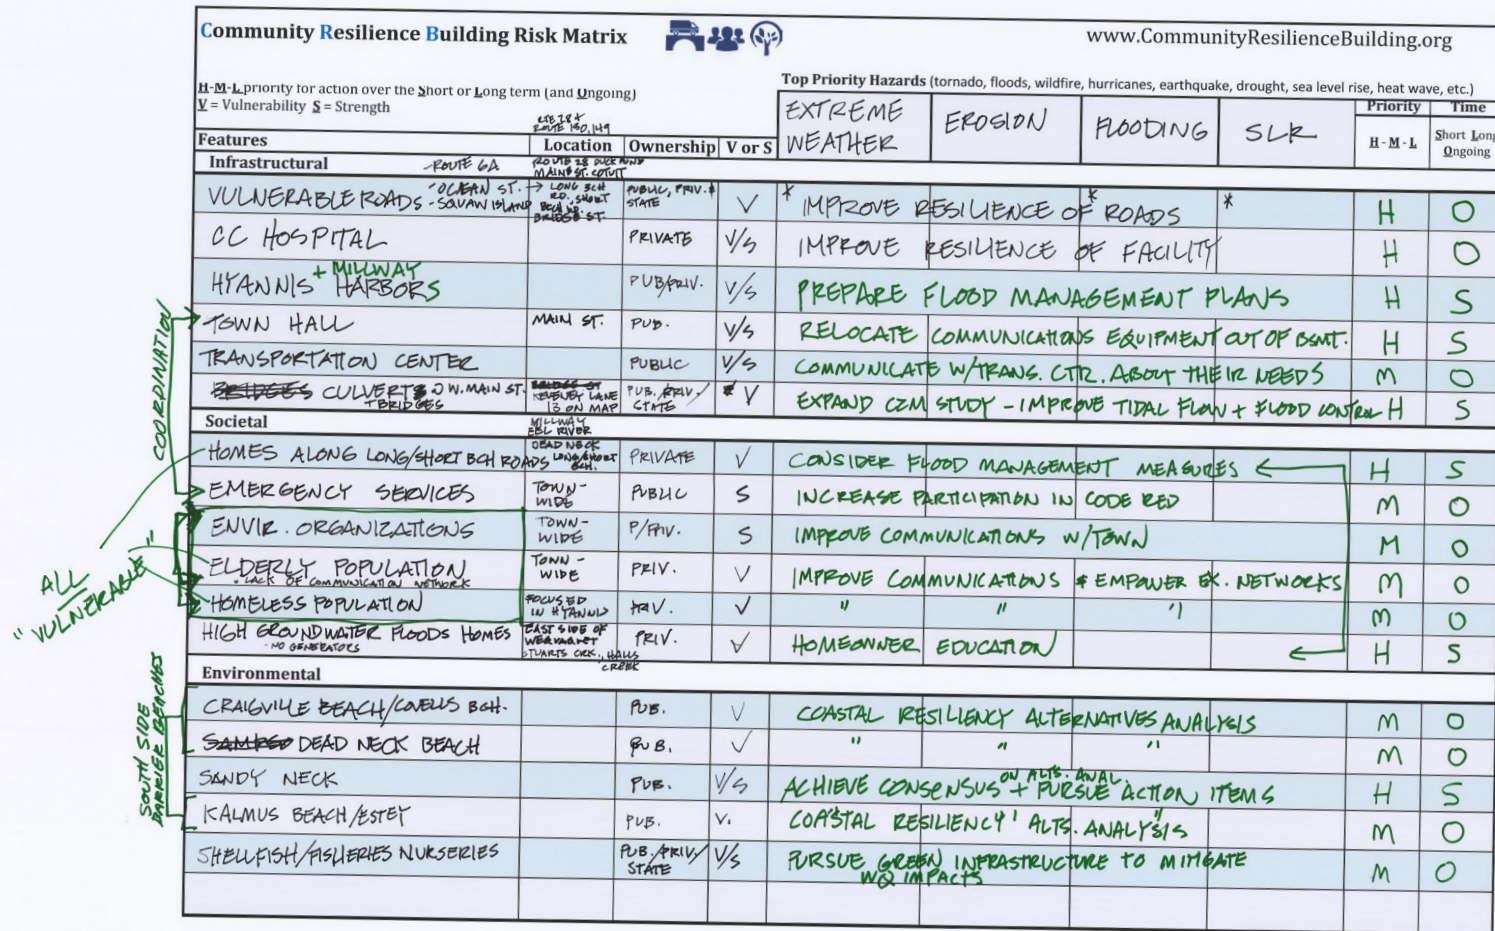 Community Resilience Building Risk Matrix
www.CommunityResilienceBuilding.org
Top Priority Hazards (tornado, floods, wildfire, hurricanes, earthquake, drought, sea level rise, heat wave, etc.)
H-M-L priority for action over the Short or Long term (and Ongoing)
V = Vulnerability S = Strength
RTE 28 &
ROUTE 130, 149
EXTREME WEATHER EROSION FLOODING SLR
Priority Time
Features Location Ownership V or S H - M - L Short Long Ongoing
Infrastructural -ROUTE 6A ROUTE 28 DUCK POND
MAIN ST. COTUIT
VULNERABLE ROADS -OCEAN ST. → LONG BCH RD., SHORT BCH RD. BRIDGE ST. PUBLIC, PRIV. & STATE V * IMPROVE RESILIENCE OF * ROADS * H O
-SQUAW ISLAND
CC HOSPITAL PRIVATE V/S IMPROVE RESILIENCE OF FACILITY H O
HYANNIS + MILLWAY HARBORS PUB/PRIV. V/S PREPARE FLOOD MANAGEMENT PLANS H S
TOWN HALL MAIN ST. PUB. V/S RELOCATE COMMUNICATIONS EQUIPMENT OUT OF BSMT. H S
TRANSPORTATION CENTER PUBLIC V/S COMMUNICATE W/TRANS. CTR. ABOUT THEIR NEEDS M O
BRIDGES CULVERTS W. MAIN ST. + BRIDGES BRIDGE ST KEVENEY LANE 13 ON MAP PUB./PRIV./ STATE V EXPAND CZM STUDY - IMPROVE TIDAL FLOW + FLOOD CONTROL H S
Societal MILLWAY
EEL RIVER
HOMES ALONG LONG/SHORT BCH ROADS DEAD NECK LONG/SHORT BCH. PRIVATE V CONSIDER FLOOD MANAGEMENT MEASURES H S
EMERGENCY SERVICES TOWN-WIDE PUBLIC S INCREASE PARTICIPATION IN CODE RED M O
ENVIR. ORGANIZATIONS TOWN-WIDE P/PRIV. S IMPROVE COMMUNICATIONS W/TOWN M O
ELDERLY POPULATION TOWN-WIDE PRIV. V IMPROVE COMMUNICATIONS & EMPOWER EX. NETWORKS M O
• LACK OF COMMUNICATION NETWORK
HOMELESS POPULATION FOCUSED IN HYANNIS PRIV. V " " " M O
HIGH GROUNDWATER FLOODS HOMES EAST SIDE OF WEQUAQUET STUARTS CRK., HALLS CREEK PRIV. V HOMEOWNER EDUCATION H S
-NO GENERATORS
Environmental
CRAIGVILLE BEACH/COVELLS BCH. PUB. V COASTAL RESILIENCY ALTERNATIVES ANALYSIS M O
DEAD NECK BEACH PUB. V " " " M O
SANDY NECK PUB. V/S ACHIEVE CONSENSUS ON ALTS. ANAL. + PURSUE ACTION ITEMS H S
KALMUS BEACH/ESTEY PUB. V. COASTAL RESILIENCY ALTS. ANALYSIS M O
SHELLFISH/FISHERIES NURSERIES PUB./PRIV/ STATE V/S PURSUE GREEN INFRASTRUCTURE TO MITIGATE M O
WQ IMPACTS
COORDINATION
ALL
"VULNERABLE"
SOUTH SIDE
BARRIER BEACHES